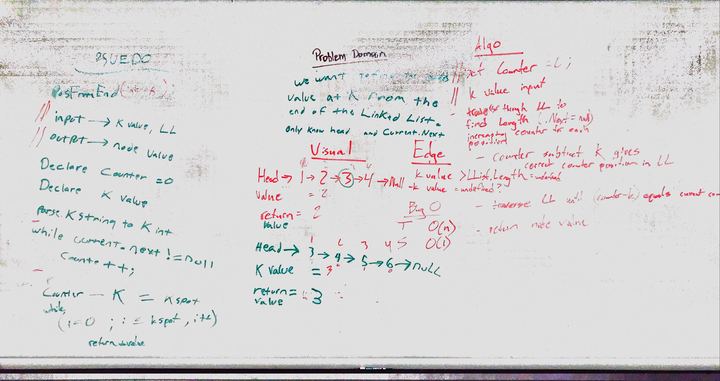 PSUEDO
PosFromEnd
// input → K value, LL
// output → node value
Declare Counter = 0
Declare K value
parse K string to K int
while current.next != null
Counter++;
Counter - K = kspot
while
(i=0 ; i ≤ kspot, i++)
return value
Problem Domain
we want
value at K from the
end of the Linked List.
only know head and Current.Next
Visual
Head → 1 → 2 → 3 → 4 → Null
value = 2
return = 2
value
Head → 3 → 4 → 5 → 6 → null
1 2 3 4
K value = 3
return = 3
value
Edge
- K value > LList.Length = undefined
- K value = undefined?
Big O
T O(n)
S O(1)
Algo
// set Counter =
// K value input
- traverse though LL to
find length (.Next = null)
incrementing counter for each
position
- counter subtract K gives
correct counter position in LL
- traverse LL until (counter-k) equals current
- return node value